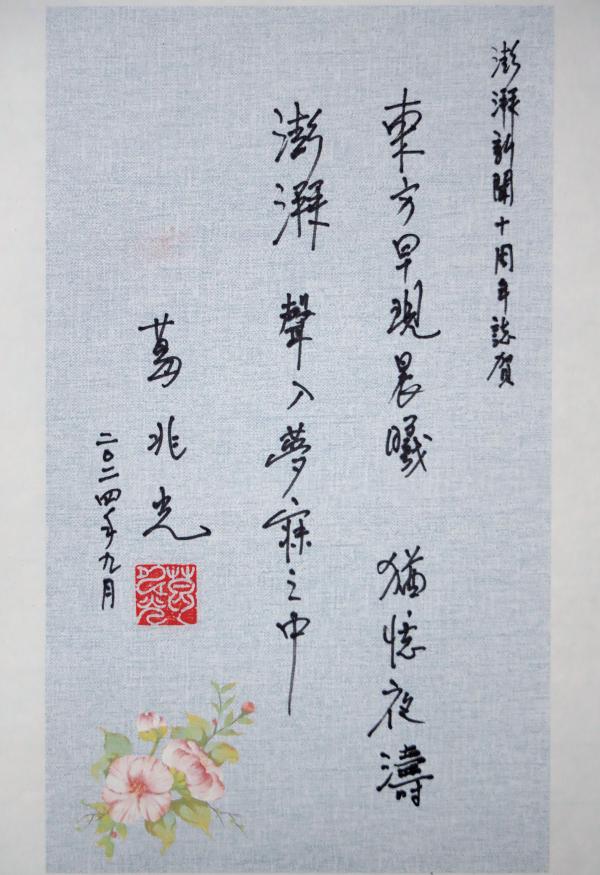 澎湃新聞十周年誌賀
東方早現晨曦 猶憶夜濤
澎湃 聲入夢寐之中
葛兆光
二〇二四年九月